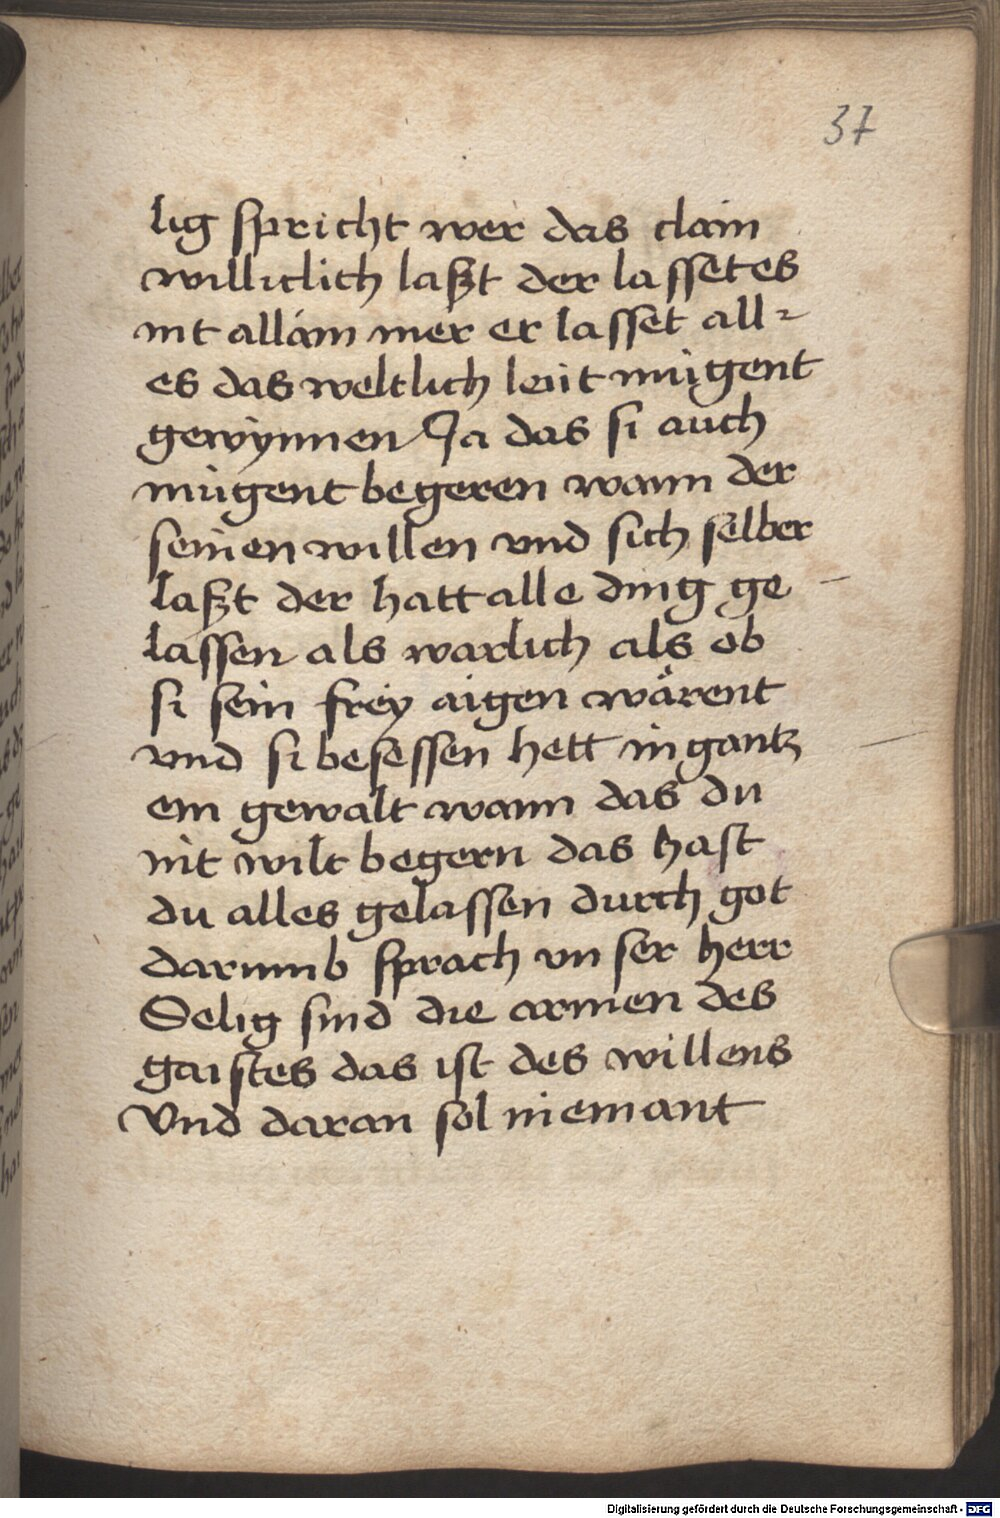 37
lig spricht wer das clain
williclich laßt der lassetes
nit allain mer er lasset all⸗
es das weltlich leüt mügent
gewynnen Ja das si auch
mügent begeren wann der
seinen willen vnd sich selber
laßt der hatt alle ding ge
lassen als warlich als ob
si sein frey aigen wärent
vnd si besessen hett in gantz
em gewalt wann das du
nit wilt begern das hast
du alles gelassen durch got
darumb sprach vnser herr
Selig sind die armen des
gaistes das ist des willens
Vnd daran sol niemant
Digitalisierung gefördert durch die Deutsche Forschungsgemeinschaft - DFG